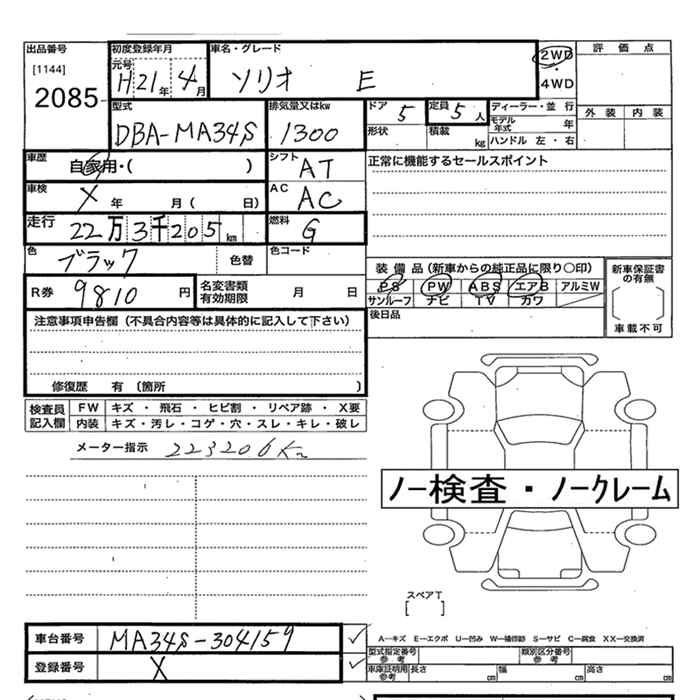 出品番号 初度登録年月 車名・グレード 2WD 評価点
[1144] 元号 H21年 4月 ソリオ E ・
2085 4WD
型式 排気量又はkw ドア 5 定員 5人 ディーラー・並行 外装 内装
DBA-MA34S 1300 形状 積載 kg モデル年式 年
ハンドル 左・右
車歴 自家用・( ) シフト AT 正常に機能するセールスポイント
車検 X 年 月( 日) AC AC
走行 22万3千205km 燃料 G
色 ブラック 色替 色コード
装備品(新車からの純正品に限り○印) 新車保証書の有無
R券 9810円 名変書類有効期限 月 日 PS PW ABS エアB アルミW
サンルーフ ナビ TV カワ
注意事項申告欄(不具合内容等は具体的に記入して下さい) 後日品 車載不可
修復歴 有 〔箇所 〕
検査員 FW キズ・飛石・ヒビ割・リペア跡・X要
記入欄 内装 キズ・汚レ・コゲ・穴・スレ・キレ・破レ
メーター指示 223206Km
ノー検査・ノークレーム
スペアT
[ ]
車台番号 MA34S-304159 ✓ A―キズ E―エクボ U―凹み W―補修跡 S―サビ C―腐食 XX―交換済
登録番号 X ✓ 型式指定番号 参考 類別区分番号 参考
車庫証明用 参考 長さ cm 幅 cm 高さ cm